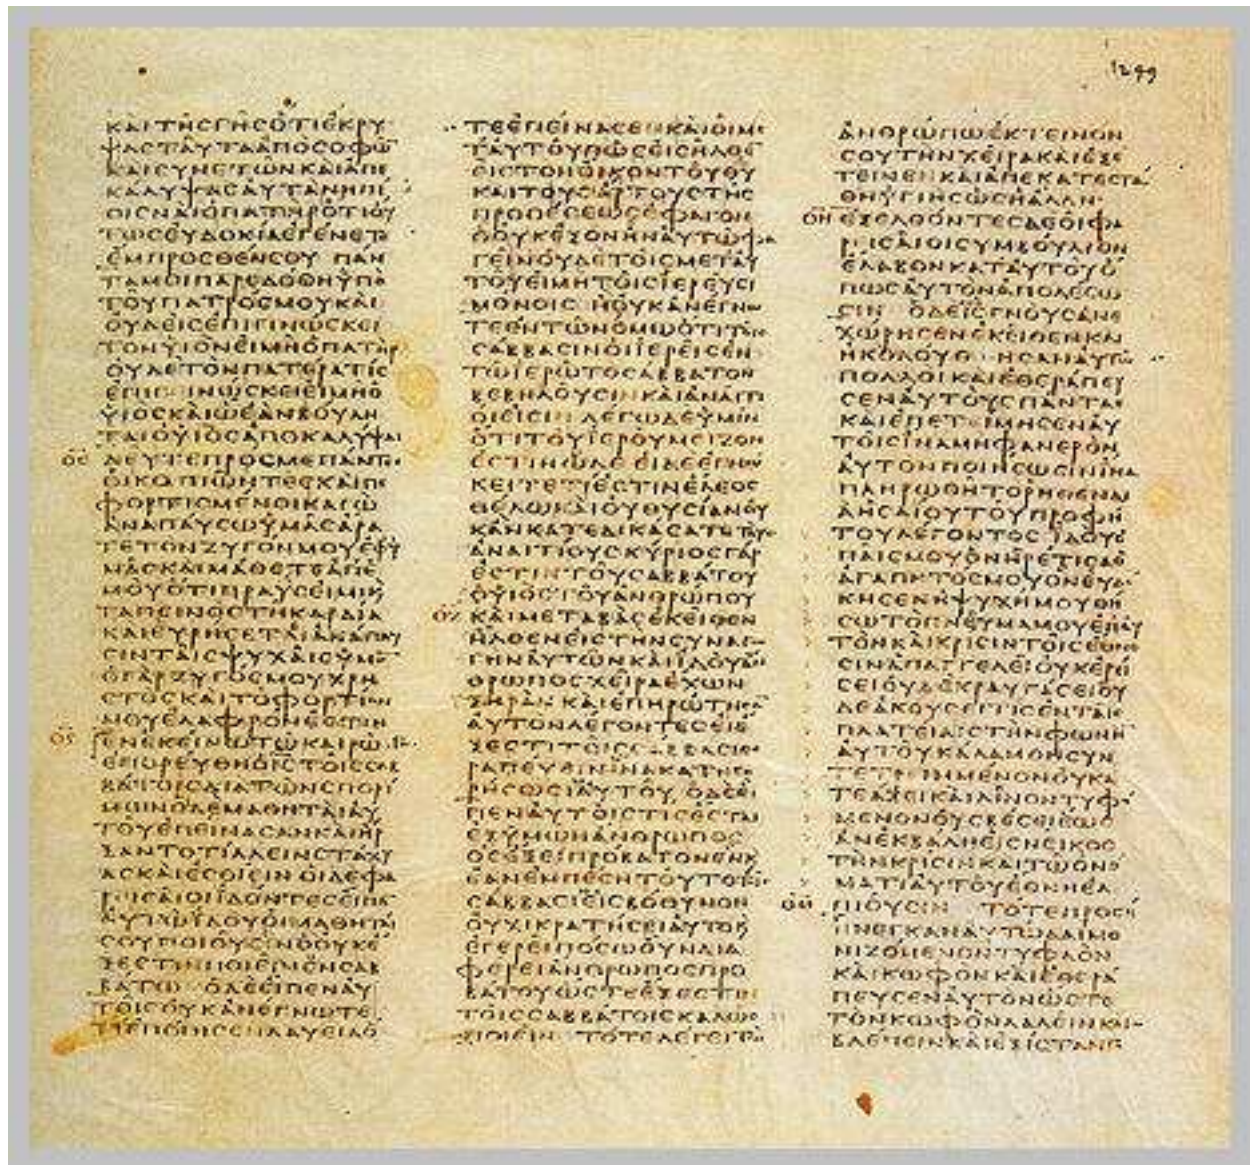 ΚΑΙΤΗϹΓΗϹΟΤΙΕΚΡΥ
ΨΑϹΤΑΥΤΑΑΠΟϹΟΦΩ
ΚΑΙϹΥΝΕΤΩΝΚΑΙΑΠΕ
ΚΑΛΥΨΑϹΑΥΤΑΝΗΠΙ
ΟΙϹΝΑΙΟΠΑΤΗΡΟΤΙΟΥ
ΤΩϹΕΥΔΟΚΙΑΕΓΕΝΕΤΟ
ΕΜΠΡΟϹΘΕΝϹΟΥ ΠΑΝ
ΤΑΜΟΙΠΑΡΕΔΟΘΗΥΠΟ
ΤΟΥΠΑΤΡΟϹΜΟΥΚΑΙ
ΟΥΔΕΙϹΕΠΙΓΙΝΩϹΚΕΙ
ΤΟΝΥΙΟΝΕΙΜΗΟΠΑΤΗΡ
ΟΥΔΕΤΟΝΠΑΤΕΡΑΤΙϹ
ΕΠΙΓΙΝΩϹΚΕΙΕΙΜΗΟ
ΥΙΟϹΚΑΙΩΕΑΝΒΟΥΛΗ
ΤΑΙΟΥΙΟϹΑΠΟΚΑΛΥΨΑΙ
ΟΕ ΔΕΥΤΕΠΡΟϹΜΕΠΑΝΤΕϹ
ΟΙΚΟΠΙΩΝΤΕϹΚΑΙΠΕ
ΦΟΡΤΙϹΜΕΝΟΙΚΑΓΩ
ΑΝΑΠΑΥϹΩΥΜΑϹΑΡΑ
ΤΕΤΟΝΖΥΓΟΝΜΟΥΕΦΥ
ΜΑϹΚΑΙΜΑΘΕΤΕΑΠΕ
ΜΟΥΟΤΙΠΡΑΥϹΕΙΜΙΚ
ΤΑΠΕΙΝΟϹΤΗΚΑΡΔΙΑ
ΚΑΙΕΥΡΗϹΕΤΑΙΑΝΑΠΑΥ
ϹΙΝΤΑΙϹΨΥΧΑΙϹΥΜΩ
ΟΓΑΡΖΥΓΟϹΜΟΥΧΡΗ
ϹΤΟϹΚΑΙΤΟΦΟΡΤΙΟΝ
ΜΟΥΕΛΑΦΡΟΝΕϹΤΙΝ
ΟϚ ΕΝΕΚΕΙΝΩΤΩΚΑΙΡΩ
ΕΠΟΡΕΥΘΗΟΙϹΤΟΙϹϹΑΒ
ΒΑΤΟΙϹΔΙΑΤΩΝϹΠΟΡΙ
ΜΩΝΟΙΔΕΜΑΘΗΤΑΙΑΥ
ΤΟΥΕΠΕΙΝΑϹΑΝΚΑΙΗΡ
ΞΑΝΤΟΤΙΛΛΕΙΝϹΤΑΧΥ
ΑϹΚΑΙΕϹΘΙΕΙΝΟΙΔΕΦΑ
ΡΕΙϹΑΙΟΙΙΔΟΝΤΕϹΕΙΠΑ
ΑΥΤΩΙΔΟΥΟΙΜΑΘΗΤΑΙ
ϹΟΥΠΟΙΟΥϹΙΝΟΟΥΚΕ
ΞΕϹΤΙΝΠΟΙΕΙΝΕΝϹΑΒ
ΒΑΤΩ ΟΔΕΕΙΠΕΝΑΥ
ΤΟΙϹΟΥΚΑΝΕΓΝΩΤΕ
ΤΙΕΠΟΙΗϹΕΝΔΑΥΕΙΔΟ
ΤΕΕΠΕΙΝΑϹΕΝΚΑΙΟΙΜΕ
ΤΑΥΤΟΥΠΩϹΕΙϹΗΛΘΕ
ΕΙϹΤΟΝΟΙΚΟΝΤΟΥΘΥ
ΚΑΙΤΟΥϹΑΡΤΟΥϹΤΗϹ
ΠΡΟΘΕϹΕΩϹΕΦΑΓΟΝ
ΟΟΥΚΕΞΟΝΗΝΑΥΤΩΦΑ
ΓΕΙΝΟΥΔΕΤΟΙϹΜΕΤΑΥ
ΤΟΥΕΙΜΗΤΟΙϹΙΕΡΕΥϹΙ
ΜΟΝΟΙϹ ΗΟΥΚΑΝΕΓΝΩ
ΤΕΕΝΤΩΝΟΜΩΟΤΙΤΟΙϹ
ϹΑΒΒΑϹΙΝΟΙΙΕΡΕΙϹΕΝ
ΤΩΙΕΡΩΤΟϹΑΒΒΑΤΟΝ
ΒΕΒΗΛΟΥϹΙΝΚΑΙΑΝΑΙΤΙ
ΟΙΕΙϹΙΝ ΛΕΓΩΔΕΥΜΙΝ
ΟΤΙΤΟΥΙΕΡΟΥΜΕΙΖΟΝ
ΕϹΤΙΝΩΔΕ ΕΙΔΕΕΓΝΩ
ΚΕΙΤΕΤΙΕϹΤΙΝΕΛΕΟϹ
ΘΕΛΩΚΑΙΟΥΘΥϹΙΑΝΟΥ
ΚΑΝΚΑΤΕΔΙΚΑϹΑΤΕΤΟΥϹ
ΑΝΑΙΤΙΟΥϹΚΥΡΙΟϹΓΑΡ
ΕϹΤΙΝΤΟΥϹΑΒΒΑΤΟΥ
ΟΥΙΟϹΤΟΥΑΝΘΡΩΠΟΥ
ΟΖ ΚΑΙΜΕΤΑΒΑϹΕΚΕΙΘΕΝ
ΗΛΘΕΝΕΙϹΤΗΝϹΥΝΑΓΩ
ΓΗΝΑΥΤΩΝΚΑΙΙΔΟΥΑΝ
ΘΡΩΠΟϹΧΕΙΡΑΕΧΩΝ
ΞΗΡΑΝ ΚΑΙΕΠΗΡΩΤΗϹΑ
ΑΥΤΟΝΛΕΓΟΝΤΕϹΕΙΕ
ΞΕϹΤΙΤΟΙϹϹΑΒΒΑϹΙΘΕ
ΡΑΠΕΥΕΙΝΙΝΑΚΑΤΗΓΟ
ΡΗϹΩϹΙΑΥΤΟΥ ΟΔΕΕΙ
ΠΕΝΑΥΤΟΙϹΤΙϹΕϹΤΑΙ
ΕΞΥΜΩΝΑΝΘΡΩΠΟϹ
ΟϹΕΞΕΙΠΡΟΒΑΤΟΝΕΝΚ
ΕΑΝΕΜΠΕϹΗΤΟΥΤΟΤΟΙϹ
ϹΑΒΒΑϹΙΕΙϹΒΟΘΥΝΟΝ
ΟΥΧΙΚΡΑΤΗϹΕΙΑΥΤΟΚ
ΕΓΕΡΕΙΠΟϹΩΟΥΝΔΙΑ
ΦΕΡΕΙΑΝΘΡΩΠΟϹΠΡΟ
ΒΑΤΟΥΩϹΤΕΕΞΕϹΤΙΝ
ΤΟΙϹϹΑΒΒΑΤΟΙϹΚΑΛΩϹ
ΠΟΙΕΙΝ ΤΟΤΕΛΕΓΕΙΤΩ
ΑΝΘΡΩΠΩΕΚΤΕΙΝΟΝ
ϹΟΥΤΗΝΧΕΙΡΑΚΑΙΕΞΕ
ΤΕΙΝΕΝΚΑΙΑΠΕΚΑΤΕϹΤΑ
ΘΗΥΓΙΗϹΩϹΗΑΛΛΗ
ΟΗ ΕΞΕΛΘΟΝΤΕϹΔΕΟΙΦΑ
ΡΕΙϹΑΙΟΙϹΥΜΒΟΥΛΙΟΝ
ΕΛΑΒΟΝΚΑΤΑΥΤΟΥΟ
ΠΩϹΑΥΤΟΝΑΠΟΛΕϹΩ
ϹΙΝ ΟΔΕΙϹΓΝΟΥϹΑΝΕ
ΧΩΡΗϹΕΝΕΚΕΙΘΕΝΚΑΙ
ΗΚΟΛΟΥΘΗϹΑΝΑΥΤΩ
ΠΟΛΛΟΙΚΑΙΕΘΕΡΑΠΕΥ
ϹΕΝΑΥΤΟΥϹΠΑΝΤΑϹ
ΚΑΙΕΠΕΤΕΙΜΗϹΕΝΑΥ
ΤΟΙϹΙΝΑΜΗΦΑΝΕΡΟΝ
ΑΥΤΟΝΠΟΙΗϹΩϹΙΝΙΝΑ
ΠΛΗΡΩΘΗΤΟΡΗΘΕΝΔΙ
ΑΗϹΑΙΟΥΤΟΥΠΡΟΦΗ
ΤΟΥΛΕΓΟΝΤΟϹ ΙΔΟΥΟ
ΠΑΙϹΜΟΥΟΝΗΡΕΤΙϹΑΟ
ΑΓΑΠΗΤΟϹΜΟΥΟΝΕΥΔΟ
ΚΗϹΕΝΗΨΥΧΗΜΟΥΘΗ
ϹΩΤΟΠΝΕΥΜΑΜΟΥΕΠΑΥ
ΤΟΝΚΑΙΚΡΙϹΙΝΤΟΙϹΕΘΝΕ
ϹΙΝΑΠΑΓΓΕΛΕΙΟΥΚΕΡΙ
ϹΕΙΟΥΔΕΚΡΑΥΓΑϹΕΙΟΥ
ΔΕΑΚΟΥϹΕΙΤΙϹΕΝΤΑΙϹ
ΠΛΑΤΕΙΑΙϹΤΗΝΦΩΝΗ
ΑΥΤΟΥΚΑΛΑΜΟΝϹΥΝ
ΤΕΤΡΙΜΜΕΝΟΝΟΥΚΑ
ΤΕΑΞΕΙΚΑΙΛΙΝΟΝΤΥΦΟ
ΜΕΝΟΝΟΥϹΒΕϹΕΙΕΩϹ
ΑΝΕΚΒΑΛΗΕΙϹΝΕΙΚΟϹ
ΤΗΝΚΡΙϹΙΝΚΑΙΤΩΟΝΟ
ΜΑΤΙΑΥΤΟΥΕΘΝΗΕΛ
ΟΘ ΠΙΟΥϹΙΝ ΤΟΤΕΠΡΟϹΗ
ΝΕΓΚΑΝΑΥΤΩΔΑΙΜΟ
ΝΙΖΟΜΕΝΟΝΤΥΦΛΟΝ
ΚΑΙΚΩΦΟΝΚΑΙΕΘΕΡΑ
ΠΕΥϹΕΝΑΥΤΟΝΩϹΤΕ
ΤΟΝΚΩΦΟΝΛΑΛΕΙΝΚΑΙ
ΒΛΕΠΕΙΝΚΑΙΕΞΙϹΤΑΝΤΟ